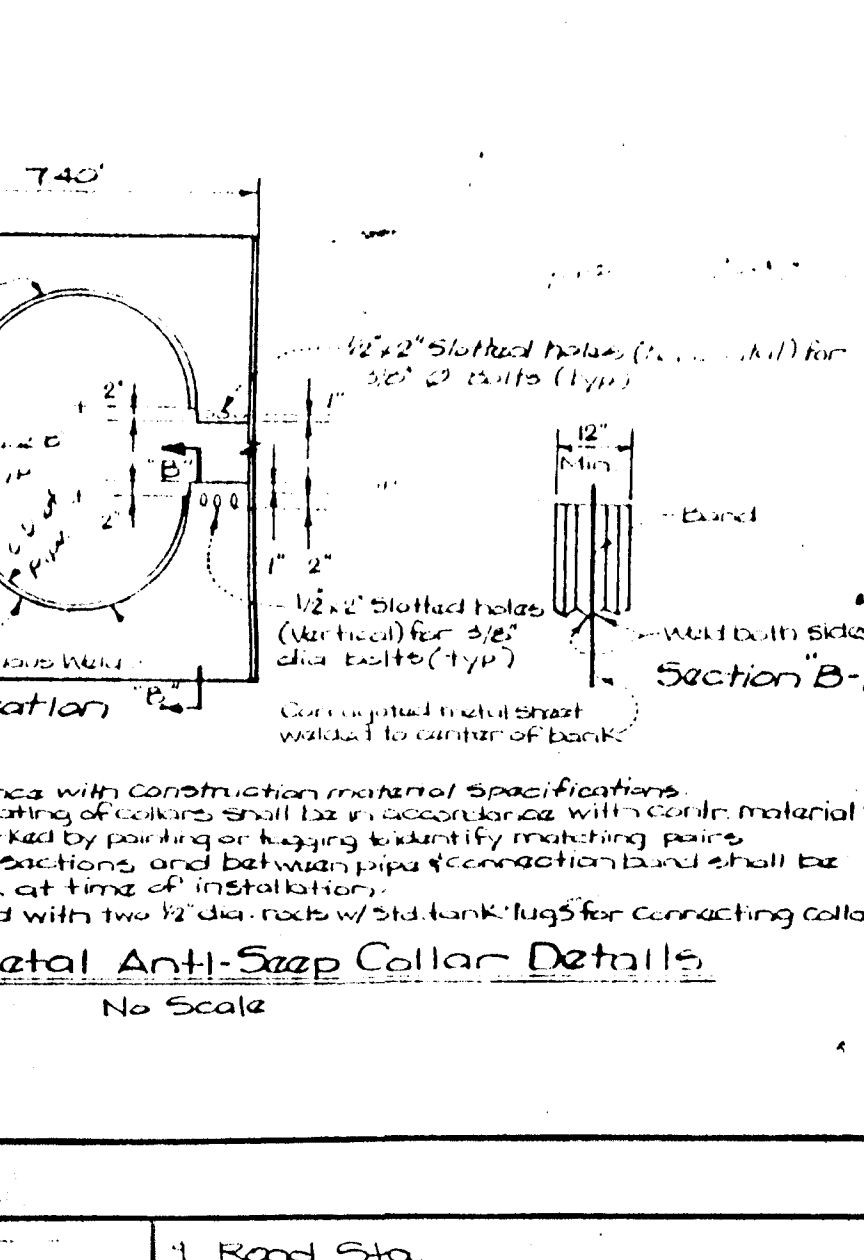 7.40'
1/2"x2" Slotted holes () for
3/8" Ø Bolts (typ)
2"
1"
12"
Min.
"B"
Band
2"
1" 2"
1/2"x2" Slotted holes
(Vertical) for 3/8"
dia bolts (typ)
Weld both side
Weld
Section "B-
ation
"B"
Corrugated metal sheet
welded to center of bank
nce with construction material specifications.
ating of collars shall be in accordance with contr. material
ked by painting or tagging to identify matching pairs
sections and between pipe & connection band shall be
at time of installation.
d with two 1/2" dia. rods w/ std. tank lugs for connecting colla
etal Anti-Seep Collar Details
No Scale
Road Sta.